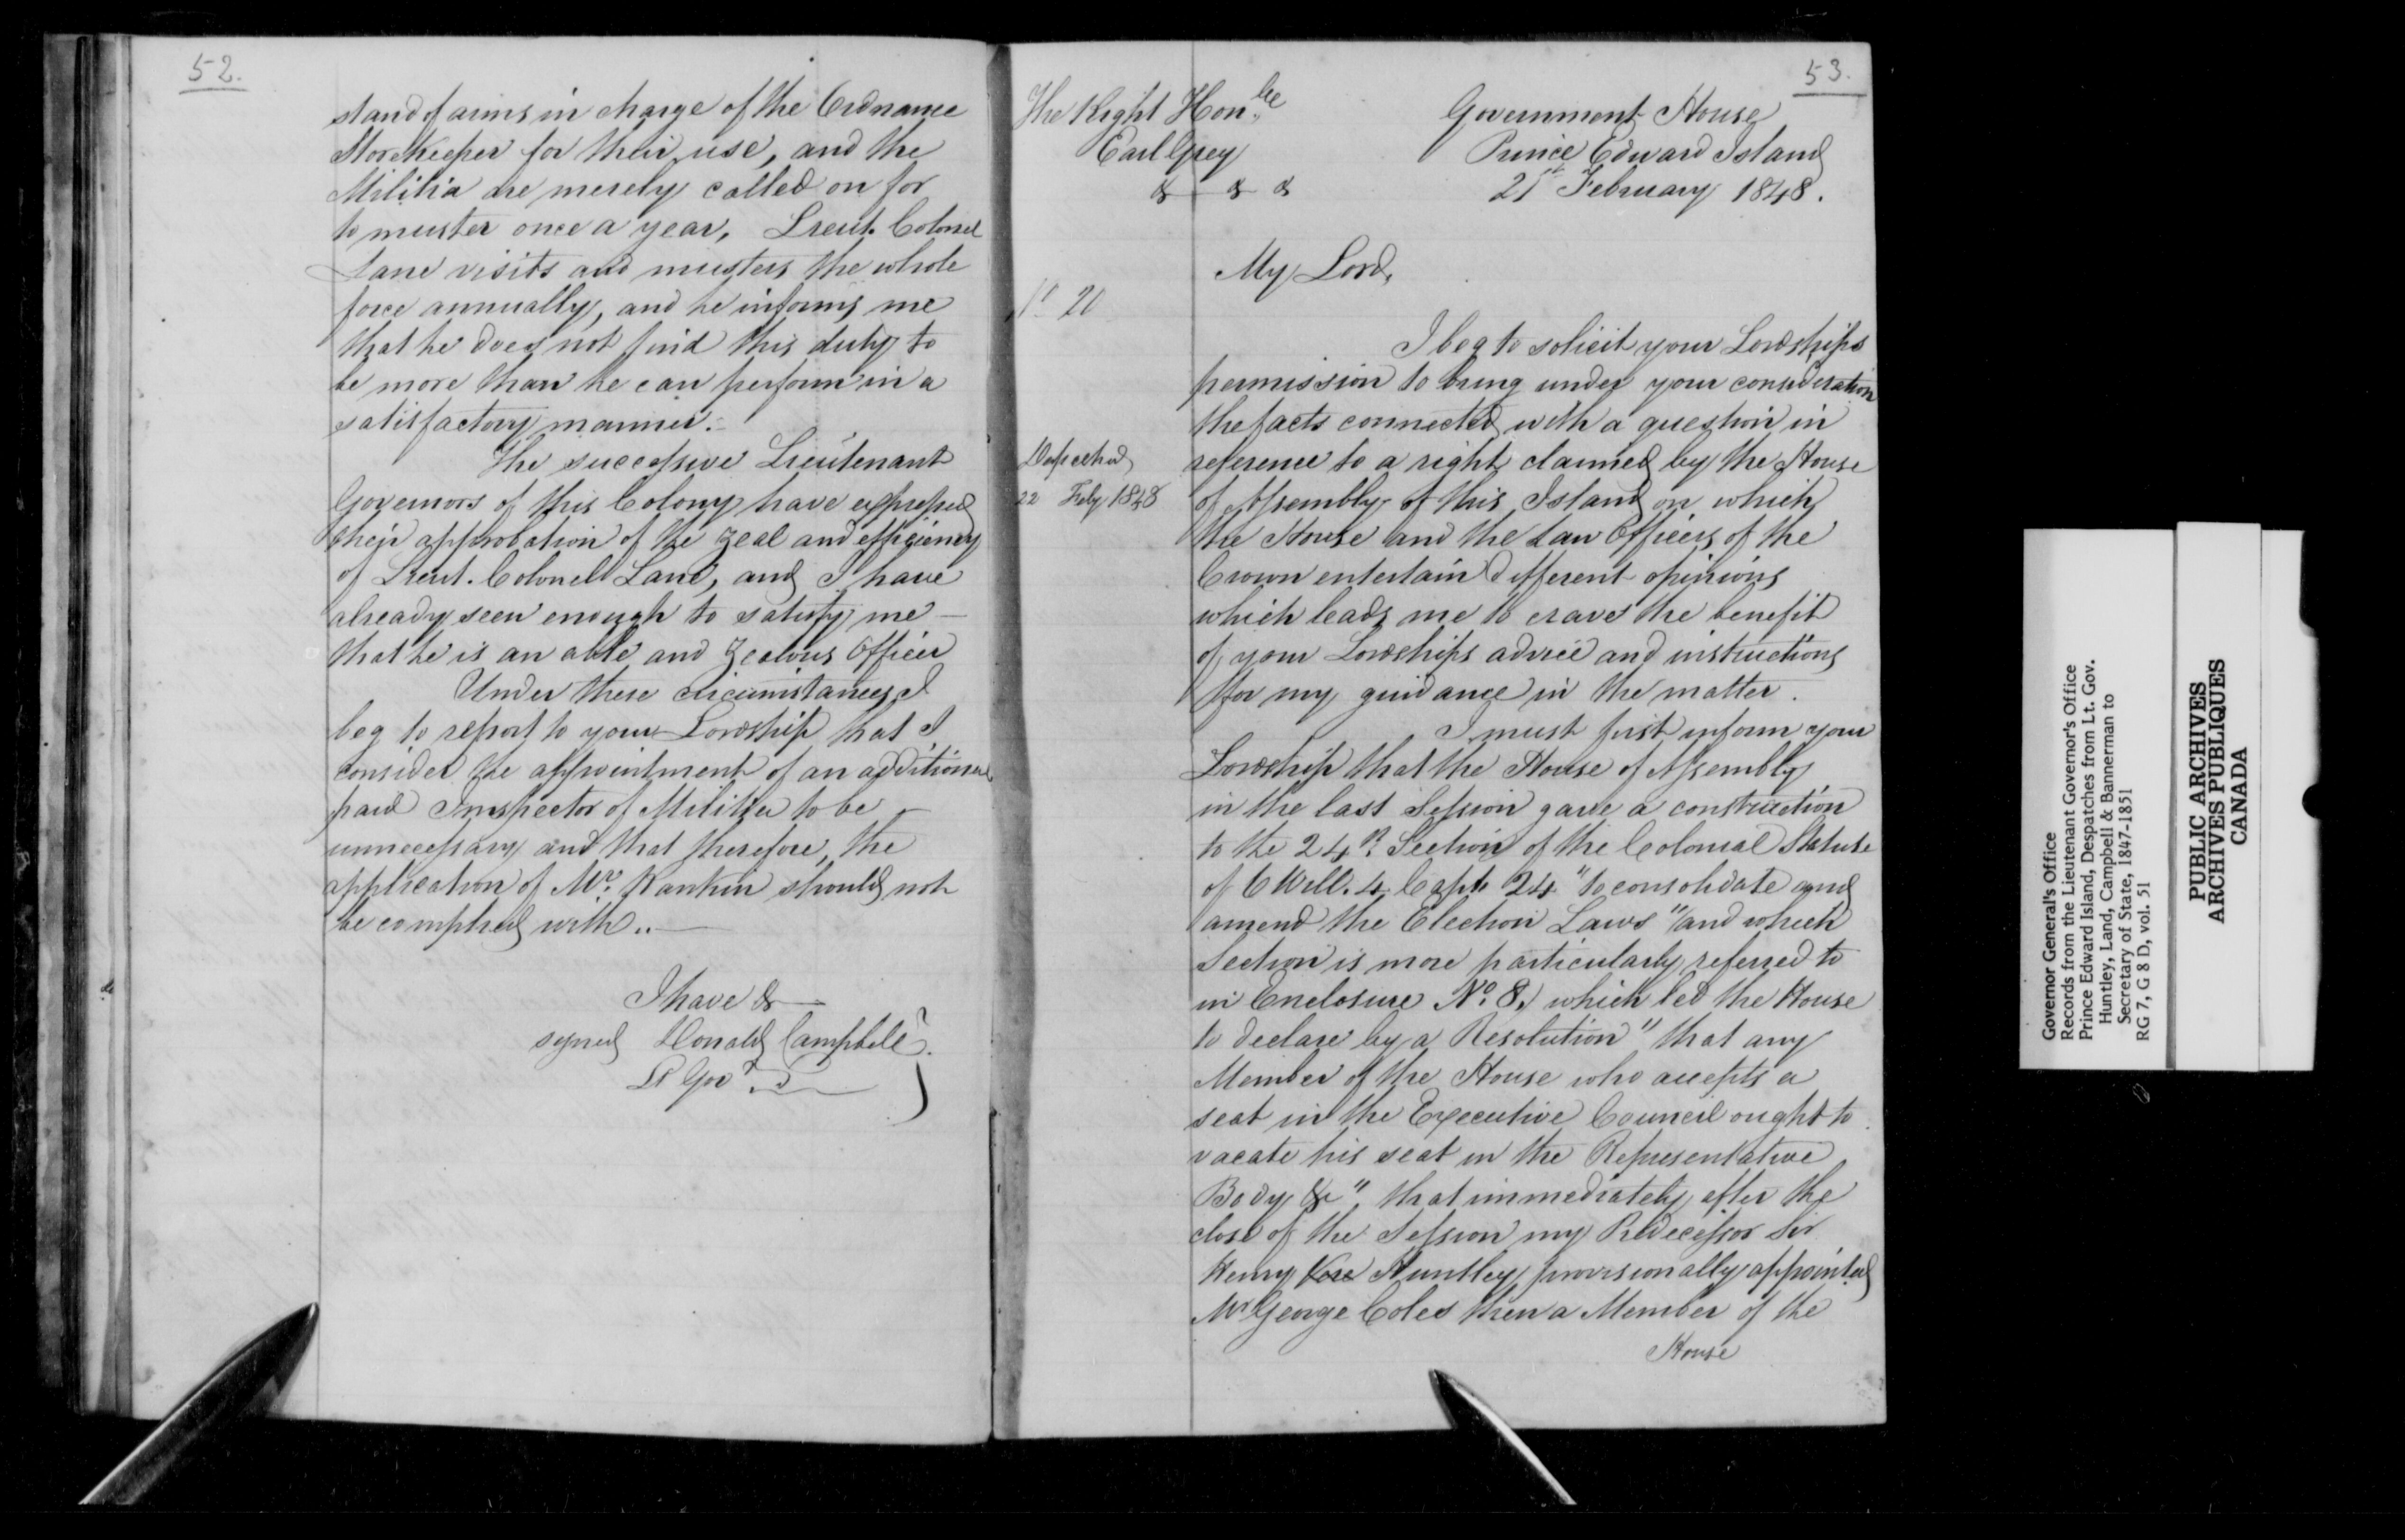 52.
stand of arms in charge of the Ordnance
Storekeeper for their use, and the
Militia are merely called on for
to muster once a year, Lieut. Colonel
Lane visits and musters the whole
force annually, and he informs me
that he does not find this duty to
be more than he can perform in a
satisfactory manner.
The successive Lieutenant
Governors of this Colony have expressed
their approbation of the zeal and efficiency
of Lieut. Colonel Lane, and I have
already seen enough to satisfy me
that he is an able and Zealous Officer
Under these circumstances I
beg to report to your Lordship that I
consider the appointment of an additional
paid Inspector of Militia to be
unnecessary and that therefore, the
application of Mr. Rankin should not
be complied with..
I have &
signed Donald Campbell
Lt Govr.
53.
The Right Honble
Earl Grey
& & &
Government House
Prince Edward Island
21st February 1848.
My Lord,
No 20
I beg to solicit your Lordships
permission to bring under your consideration
the facts connected with a question in
Despatched
reference to a right claimed by the House
22 Feby 1848
of Assembly of this Island on which
the House and the Law Officers of the
Crown entertain different opinions
which leads me to crave the benefit
of your Lordships advice and instructions
for my guidance in the matter.
I must first inform your
Lordship that the House of Assembly
in the last Session gave a construction
to the 24th Section of the Colonial Statute
of 6 Will. 4 Capt 24 "to consolidate and
amend the Election Laws" and which
Section is more particularly referred to
in Enclosure No. 8, which led the House
to declare by a Resolution "that any
Member of the House who accepts a
seat in the Executive Council ought to
vacate his seat in the Representative
Body &c". that immediately after the
close of the Session my Predecessor Sir
Henry Vere Huntley provisionally appointed
Mr George Coles then a Member of the
House
Governor General's Office
Records from the Lieutenant Governor's Office
Prince Edward Island, Despatches from Lt. Gov.
Huntley, Land, Campbell & Bannerman to
Secretary of State, 1847-1851
RG 7, G 8 D, vol. 51
PUBLIC ARCHIVES
ARCHIVES PUBLIQUES
CANADA